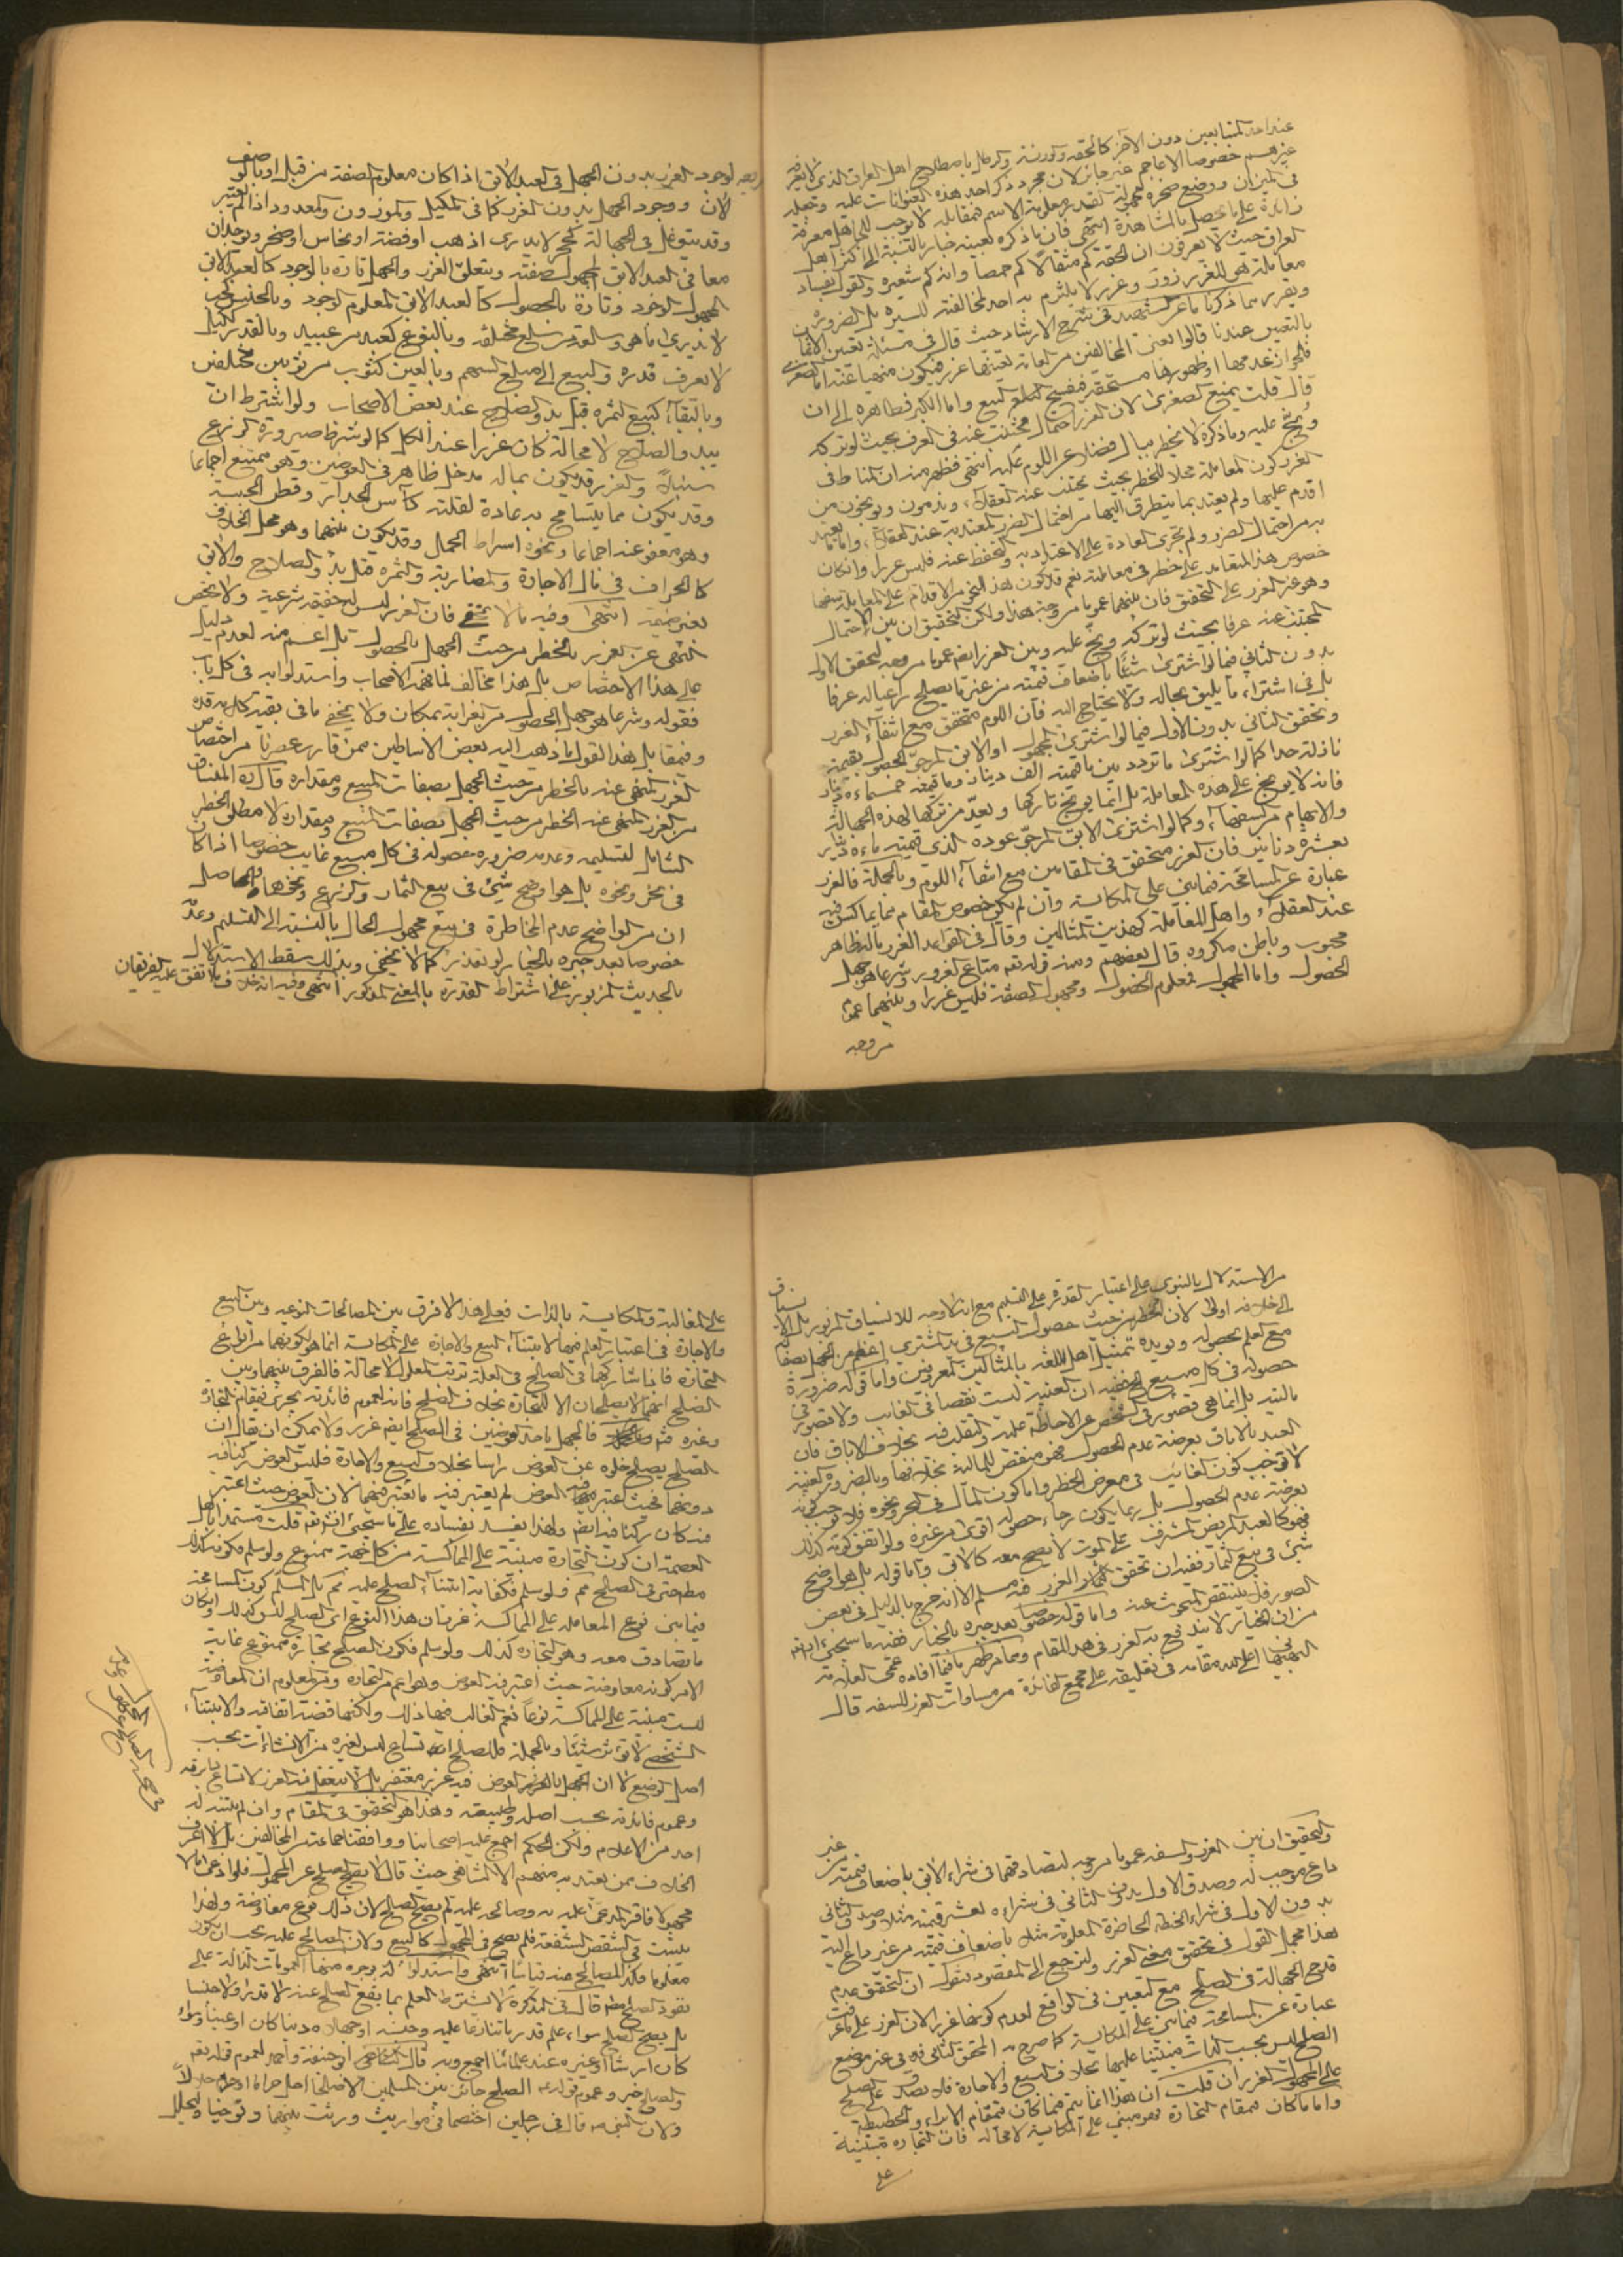 عند احد المتبايعين دون الآخر كالحقه والوزنة والرطل باصطلاح اهل العراق الذي لا يعرفه
غيرهم خصوصا الاعاجم غير جائز لان مجرد ذكر احد هذه العنوانات عليه وجعله
في الميزان ووضع صخرة مجهولة المقدار معلومة الاسم في مقابله لا يوجب للجاهل معرفة
زايدة على ما يحصل بالمشاهدة انتهى فان ما ذكره بعينه جار بالنسبة الى اكثر اهل
العراق حيث لا يعرفون ان الحقة كم مثقالا كم حمصا وانه كم شعيرة والقول بفساد
معاملة هي للغرر زور وغرر لا يلتزم به احد لمخالفته للسيرة بل الضرورة
ويقرب مما ذكرنا ما عن الشهيد في شرح الارشاد حيث قال في مسئلة تعين الاثمان
بالتعيين عندنا قالوا يعني المخالفين من العامة تعينها غرر فيكون منهيا عنه اما الصغرى
فلجواز عدمها او ظهورها مستحقة فيفسخ البيع واما الكبرى فظاهرة الى ان
قال قلت يمنع الصغرى لان الغرر احتمال مجتنب عنه في العرف بحيث لو تركه
وبخ عليه وما ذكره لا يخطر ببال فضلا عن اللوم عليه انتهى فظهر منه ان المناط في
الغرر كون المعاملة محلا للخطر بحيث يجتنب عنه العقلاء ويذمون ويوبخون من
اقدم عليها ولم يعتد بما يتطرق اليها من احتمال الضرر المعتد به عند العقلاء واما ما يعتد
به من احتمال الضرر ولم تجري العادة على الاعتداد به والتحفظ عنه فليس غررا وان كان
خصوص هذا المتعامد على خطر في معاملة نعم قد يكون هذا النحو من الاقدام على المعاملة سفها
وهو غير الغرر على التحقيق فان بينهما عموما من وجه هذا ولكن التحقيق ان بين الاحتمال
المجتنب عنه عرفا بحيث لو تركه وبخ عليه وبين الغرر ايضا عموما من وجه لتحقق الاول
بدون الثاني فيما لو اشترى شيئا باضعاف قيمته من غير ما يصلح داعيا له عرفا
بل في اشتراء ما يليق بحاله ولا يحتاج اليه فان اللوم متحقق مع انتفاء الغرر
وتحقق الثاني بدون الاول فيما لو اشترى المجهول او الآبق المرجو الحصول بقيمة
نازلة جدا كما لو اشترى ما تردد بين ما قيمته الف دينار وما قيمته خمسماءة دينار
فانه لا يوبخ على هذه المعاملة بل انما يوبخ تاركها ويعد من تركها لهذه الجهالة
والابهام من السفهاء وكما لو اشترى الآبق المرجو عوده الذي قيمته ماءة دينار
بعشرة دنانير فان الغرر متحقق في المقامين مع انتفاء اللوم وبالجملة فالغرر
عبارة عن المسامحة فيما بني على المكايسة وان لم يكن خصوص المقام مما يماكس فيه
عند العقلاء واهل المعاملة كهذين المثالين وقال في القواعد الغرر ماله ظاهر
محبوب وباطن مكروه قال بعضهم ومنه قوله تعالى متاع الغرور وشرعا هو جهل
الحصول واما المجهول فمعلوم الحصول ومجهول الصفة فليس غررا وبينهما عموم
من وجه
لوجود الغرر بدون الجهل في العبد الآبق اذا كان معلوم الصفة من قبل او بالوصف
الآن ووجود الجهل بدون الغرر كما في المكيل والموزون والمعدود اذا لم يعتبر
وقد يتوغل في الجهالة كحجر لا يدري اذهب او فضة او نحاس او صخر ويوجدان
معا في العبد الآبق المجهول صفته ويتعلق الغرر والجهل تارة بالوجود كالعبد الآبق
المجهول الوجود وتارة بالحصول كالعبد الآبق المعلوم الوجود وبالجنس كحب
لا يدري ما هو وسلعة من سلع مختلفة وبالنوع كعبد من عبيد وبالقدر ككيل
لا يعرف قدره والبيع الى مبلغ السهم وبالعين كثوب من ثوبين مختلفين
وبالبقاء كبيع الثمرة قبل بدو الصلاح عند بعض الاصحاب ولو اشترط ان
يبدو الصلاح لا محالة كان غررا عند الكل كما لو شرط صيرورة الزرع
سنبلا والغرر قد يكون بماله مدخل ظاهر في العوضين وهو ممتنع اجماعا
وقد يكون مما يتسامح به عادة لقلته كأس الجدار وقطن الجبة
وهو معفو عنه اجماعا ونحوه اشراط الحمل وقد يكون بينهما وهو محل الخلاف
كالجزاف في مال الاجارة والمضاربة والثمرة قبل بدو الصلاح والآبق
بغير ضميمة انتهى وفيه ما لا يخفى فان الغرر ليس له حقيقة شرعية ولا يختص
النهي عن الغرر بالخطر من حيث الجهل بالحصول بل اعم منه لعدم دليل
على هذا الاختصاص بل هذا مخالف لما فهمه الاصحاب واستدلوا به في كل باب
فقوله وشرعا هو جهل الحصول من الغرابة بمكان ولا يخفى ما في بقية كلامه قده
وفي مقابل هذا القول ما ذهب اليه بعض الاساطين ممن قارب عصرنا من اختصاص
الغرر المنفي عنه بالخطر من حيث الجهل بصفات المبيع ومقداره قال ره المنساق
من الغرر المنفي عنه الخطر من حيث الجهل بصفات المبيع ومقداره لا مطلق الخطر
الشامل لتسليمه وعدمه ضرورة حصوله في كل مبيع غايب خصوصا اذا كان
في بحر ونحوه بل هو اوضح شيئ في بيع الثمار والزرع ونحوهما والحاصل
ان من الواضح عدم المخاطرة في بيع مجهول الحال بالنسبة الى التسليم وعدمه
خصوصا بعد جبره بالخيار لو تعذر كما لا يخفى وبذلك سقط الاستدلال
بالحديث المزبور على اشتراط القدرة بالمعنى المذكور انتهى وفيه انه خلاف ما اتفق عليه الفريقان
من الاستدلال بالنبوي على اعتبار القدرة على التسليم مع انه لا وجه للانسياق المزبور بل الانسياق
الى خلافه اولى لان الخطر من حيث حصول المبيع في يد المشتري اعظم من الجهل بصفاته
مع العلم بحصوله ويؤيده تمثيل اهل اللغة بالمثالين المعروفين واما قوله ضرورة
حصوله في كل مبيع الخ ففيه ان الغيبة ليست نقصا في الغايب ولا قصور في
ماليته بل انما هي قصور في الشخص عن الاحاطة عليه والتقلب فيه بخلاف الاباق فان
العبد بالاباق بعرضة عدم الحصول فهو منقص للمالية بخلافها وبالضرورة الغيبة
لا توجب كون الغائب في معرض الخطر واما كون المال في البحر ونحوه فلا يوجب كونه
بعرضة عدم الحصول بل ربما يكون رجاء حصوله اقوى من غيره ولو اتفق كونه كذلك
فهو كالعبد المريض المشرف على الموت لا يصح بيعه كالآبق واما قوله بل هو اوضح
شيئ في بيع الثمار ففيه ان تحقق الغرر فيه مسلم الا انه خرج بالدليل في بعض
الصور فلا ينتقض المبحوث عنه واما قوله خصوصا بعد جبره بالخيار ففيه ما سيجيئ انشاءالله
من ان الخيار لا يندفع به الغرر في هذا المقام وعما مر ظهر ما فيما افاده
البهبهاني اعلى الله مقامه في تعليقته على مجمع الفائدة من مساوات الغرر للسفه قال
والتحقيق ان بين الغرر والسفه عموما من وجه لتصادقهما في شراء الآبق باضعاف قيمته من غير
داع موجب له وصدق الاول بدون الثاني في شراءه بعشر قيمته مثلا وصدق الثاني
بدون الاول في شراء الحنطة الحاضرة المعلومة مثلا باضعاف قيمته من غير داع اليه
هذا مجمل القول في تحقيق معنى الغرر ولنرجع الى المقصود فنقول ان التحقيق عدم
قدح الجهالة في الصلح مع التعيين في الواقع لعدم كونها غررا لان الغرر على ما عرفت
عبارة عن المسامحة فيما بني على المكايسة كما صرح به المحقق الثاني قده في غير موضع
الصلح ليس بحسب الذات مبتنيا عليها بخلاف البيع والاجارة فلا يصدق على الصلح
على المجهول الغرر ان قلت ان هذا انما يتم فيما كان في مقام الابراء والحطيطة
واما ما كان في مقام التجارة فهو مبني على المكايسة لا محالة فان التجارة مبتنية
على
على المغالبة والمكايسة بالذات فعلى هذا لا فرق بين المصالحات النوعية وبين البيع
والاجارة في اعتبار العلم فيها لابتناء البيع والاجارة على المكايسة انما هو لكونهما من انواع
التجارة فاذا شاركهما في الصلح في العلة ترتب المعلول لا محالة فالفرق بينهما وبين
الصلح انهما لا يصلحان الا للتجارة بخلاف الصلح فانه لعموم فائدته يجري في مقام التجارة
وغيره فالجهل باحد العوضين في الصلح ايضا غرر ولا يمكن ان يقال ان
الصلح يصلح خلوه عن العوض راسا بخلاف البيع والاجارة فليس العوض ركنا فيه
دونهما فحيث اعتبر فيه العوض لم يعتبر فيه ما يعتبر فيهما لان العوض حيث اعتبر
فيه كان ركنا فيه ايضا ولهذا يفسد بفساده على ما سيجيئ انشاءالله قلت مستمدا باهل
العصمة ان كون التجارة مبنية على المماكسة من كل جهة ممنوع ولو سلم كونه كذلك
مطلقا حتى في الصلح فلو سلم فكفاية ابتناء الصلح عليه مم بل المسلم كون المسامحة
فيما بني نوع المعاملة على المماكسة غررا وان هذا النوع اي الصلح ليس كذلك وان كان
ما يصادق معه وهو التجارة كذلك ولو سلم فكون الصلح تجارة ممنوع غاية
الامر كونه معاوضة حيث اعتبر فيه العوض وهو اعم من التجارة ومن المعلوم ان المعاوضة
ليست مبنية على المماكسة نوعا نعم الغالب فيها ذلك ولكنها قضية اتفاقية والابتناء
الشخصي لا تؤثر شيئا وبالجملة فللصلح اتساع ليس لغيره من الانشاءات بحسب
اصل الوضع لا ان الجهل بالعوض فيه غرر مغتفر بل لا يتعقل فيه الغرر لاتساع دائرته
وعموم فائدته بحسب اصله وطبيعته وهذا هو التحقيق في المقام وان لم يتنبه له
احد من الاعلام ولكن الحكم اجمع عليه اصحابنا ووافقنا جماعة من المخالفين بل لا اعرف
الخلاف ممن يعتد به منهم الا الشافعي حيث قال لا يصح الصلح عن المجهول فلو ادعى مالا
مجهولا فاقر المدعى عليه به وصالحه عليه لم يصح الصلح لان ذلك نوع معاوضة ولهذا
يثبت في الشقص الشفعة فلم يصح في المجهول كالبيع ولان المصالح عليه يجب ان يكون
معلوما فكذا المصالح عنه قياسا انتهى واستدلوا له بوجوه منها العمومات الدالة على
نفوذ الصلح مطلقا قال في التذكرة لا يشترط العلم بما يقع الصلح عنه لا قدرا ولا جنسا
بل يصح الصلح سواء علم قدر ما تنازعا عليه وجنسه او جهلاه دينا كان او عينا وسواء
كان ارشا او غيره عند علمائنا اجمع وبه قال ابو حنيفة واحمد لعموم قوله تعالى
والصلح خير وعموم قوله الصلح جائز بين المسلمين الا صلحا احل حراما او حرم حلالا
ولان النبي ص قال في رجلين اختصما في مواريث ورثت بينهما وتوخيا وليحلل